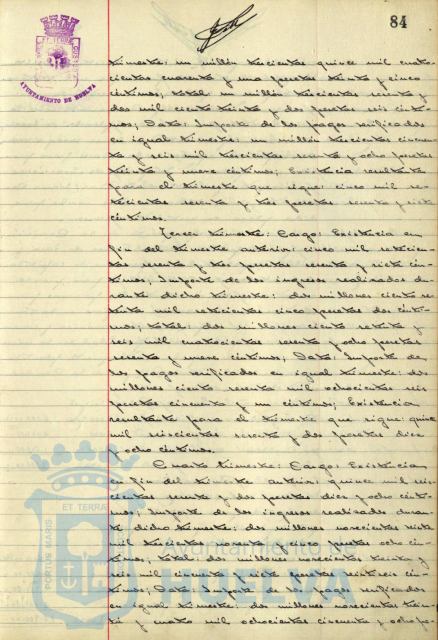 84
AYUNTAMIENTO DE HUELVA
trimestre: un millón trescientas quince mil cuatro-
cientas cuarenta y una pesetas treinta y cinco
céntimos; total: un millón trescientas sesenta y
dos mil ciento treinta y dos pesetas seis cénti-
mos; Data: Importe de los pagos verificados
en igual trimestre: un millón trescientas cincuen-
ta y seis mil trescientas sesenta y ocho pesetas
treinta y nueve céntimos; Existencia resultante
para el trimestre que sigue: cinco mil se-
tecientas sesenta y tres pesetas sesenta y siete
céntimos.
Tercer trimestre: Cargo: Existencia en
fin del trimestre anterior: cinco mil setecien-
tas sesenta y tres pesetas sesenta y siete cén-
timos; Importe de los ingresos realizados du-
rante dicho trimestre: dos millones ciento se-
tenta mil setecientas cinco pesetas dos cénti-
mos; total: dos millones ciento setenta y
seis mil cuatrocientas sesenta y ocho pesetas
sesenta y nueve céntimos; Data: Importe de
los pagos verificados en igual trimestre: dos
millones ciento sesenta mil ochocientas seis
pesetas cincuenta y un céntimos; Existencia
resultante para el trimestre que sigue: quince
mil seiscientas sesenta y dos pesetas diez
y ocho céntimos.
Cuarto trimestre: Cargo: Existencia
en fin del trimestre anterior: quince mil seis-
cientas sesenta y dos pesetas diez y ocho cénti-
mos; Importe de los ingresos realizados duran-
te dicho trimestre: dos millones novecientas veinte
mil trescientas noventa y cinco pesetas ocho cén-
timos; total: dos millones novecientas treinta y
seis mil cincuenta y siete pesetas veintiseis cén-
timos; Data: Importe de los pagos verificados
en igual trimestre: dos millones novecientas trein-
ta y cuatro mil ochocientas cincuenta y ocho pe-
ET TERRA
PORTUS MARIS
Ayuntamiento de
HUELVA